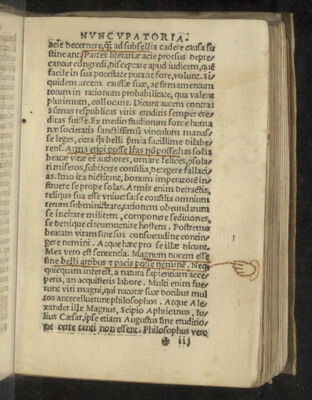 NVNCVPATORIA.
acie decernere, q̃ ad subsellia cadere causa su
stine ant. Partes literariæ acie prorsus depre
cantur congredi, disceptare apud iudicem, quẽ
facile in sua potestate putant fore, volunt. Si
quidem arcem caustæ suæ, ac firmamentum
totum in rationum probabilitate, qua valent
plurimum, collocant. Dicunt autem
summas respublicas viris eruditis semper ere
ditas fuisse. Ex medio studiorum fonte humā
næ societatis sanctissimũ vinculum manas-
se leges, citra q̃s belli facillime dilabe
rent. Arma eripi posse
beatæ vitæ eē authores, ornare felices, cōsola
ri miseros, subijcere consilia, detegere fallaci-
as. Imo ita bonum imperatorē in
struere se prope solas. Armis enim detractis,
reliqua sua esse vniuersa: se consilia omnium
rerum subministrare, rationem obeundarum
se incitare militem, componere seditiones,
se deniqúe circumuenire hostem. Postremo
beatam vitam sine son contin
gere nemini. Atque hæc pro se illæ dicunt.
Mea vero est sententia. Magnum ducem esse
sine belli artibus & pacis posse neminē. Neq̃
quicquam interest, a natura sapientiam acce
peris, an acquisieris labore. Multi enim fue-
runt viri magni, qui naturæ suæ dotibus mul
tos antecelluerunt philosophos. Atque Ale-
xander ille Magnus, Scipio Aphricanus, Iu-
lius Cæsar, ipse etiam Augustus sine eruditio
ne certe tanti non essent. Philosophus vero
✠ iij